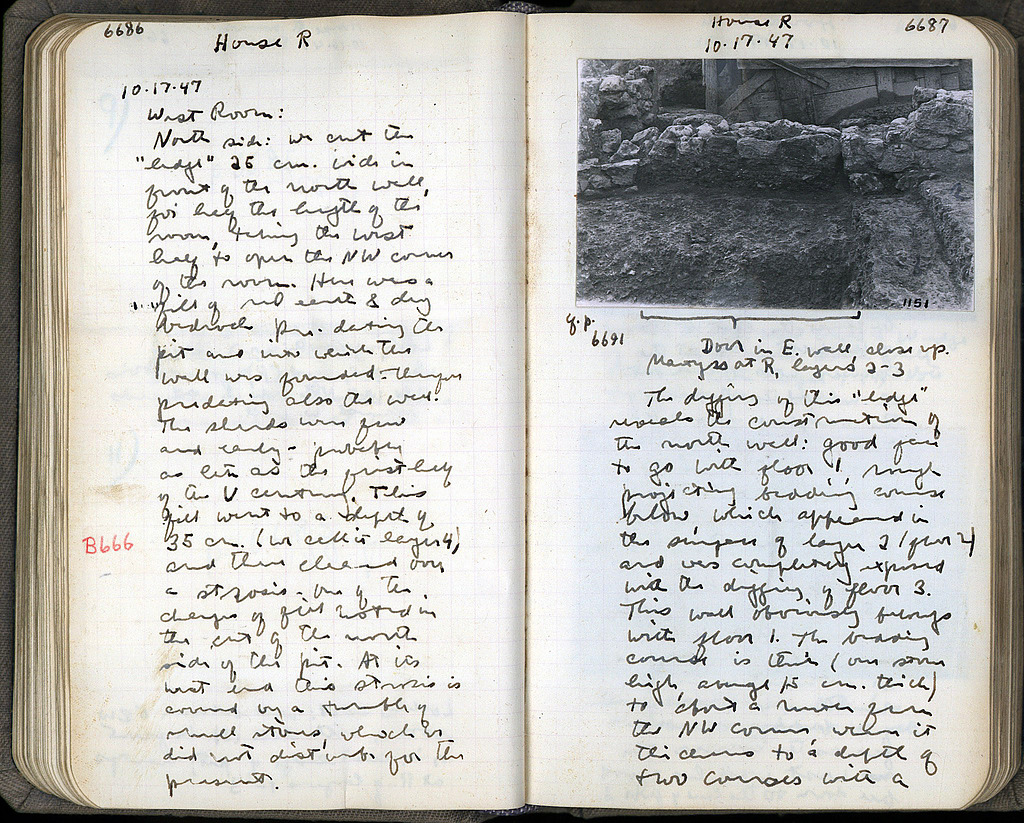 6686
House R
10·17·47
West Room:
North side: we cut the
"ledge" 25 cm. wide in
front of the north wall,
for half the length of the
room, taking the west
half to open the NW corner
of the room. Here was a
fill of red earth & dug
bedrock pre-dating the
pit and into which the
wall was founded - therefore
predating also the wall.
The sherds were few
and early - probably
as late as the first half
of the V century. This
fill went to a depth of
35 cm. (we call it layer 4)
B666
and then cleaned over
a strosis, one of the
changes of fill noted in
the cut of the north
side of the pit. At its
west end this strosis is
covered by a tumble of
small stones, which we
did not disturb for the
present.
House R
6687
10·17·47
1151
q.p.
6691
Door in E. wall, close up.
at R, layers 2-3
The digging of this "ledge"
reveals the construction of
the north wall: good face
to go with floor 1, rough
projecting bedding course
below, which appeared in
the scraping of layer 2 (floor 2)
and was completely exposed
with the digging of floor 3.
This wall obviously belongs
with floor 1. The bedding
course is thin (one stone
high, average 15 cm. thick)
to about a meter from
the NW corner where it
thickens to a depth of
two courses with a